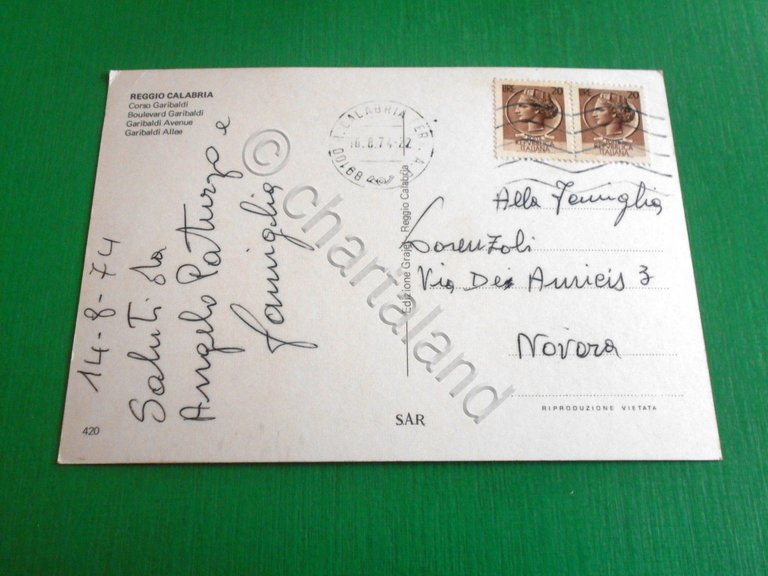 REGGIO CALABRIA
Corso Garibaldi
Boulevard Garibaldi
Garibaldi Avenue
Garibaldi Allee
14-8-74
Saluti da
Angelo Paturzo e
famiglia
420
R.CALABRIA FER
16.8.74-22
89100
LIRE 20
REPUBBLICA
ITALIANA
LIRE 20
REPUBBLICA
ITALIANA
Edizione Reggio Calabria
Alla Famiglia
Lorenzoli
Via Dei Amicis 3
Novara
RIPRODUZIONE VIETATA
S.A.R
© chartaland